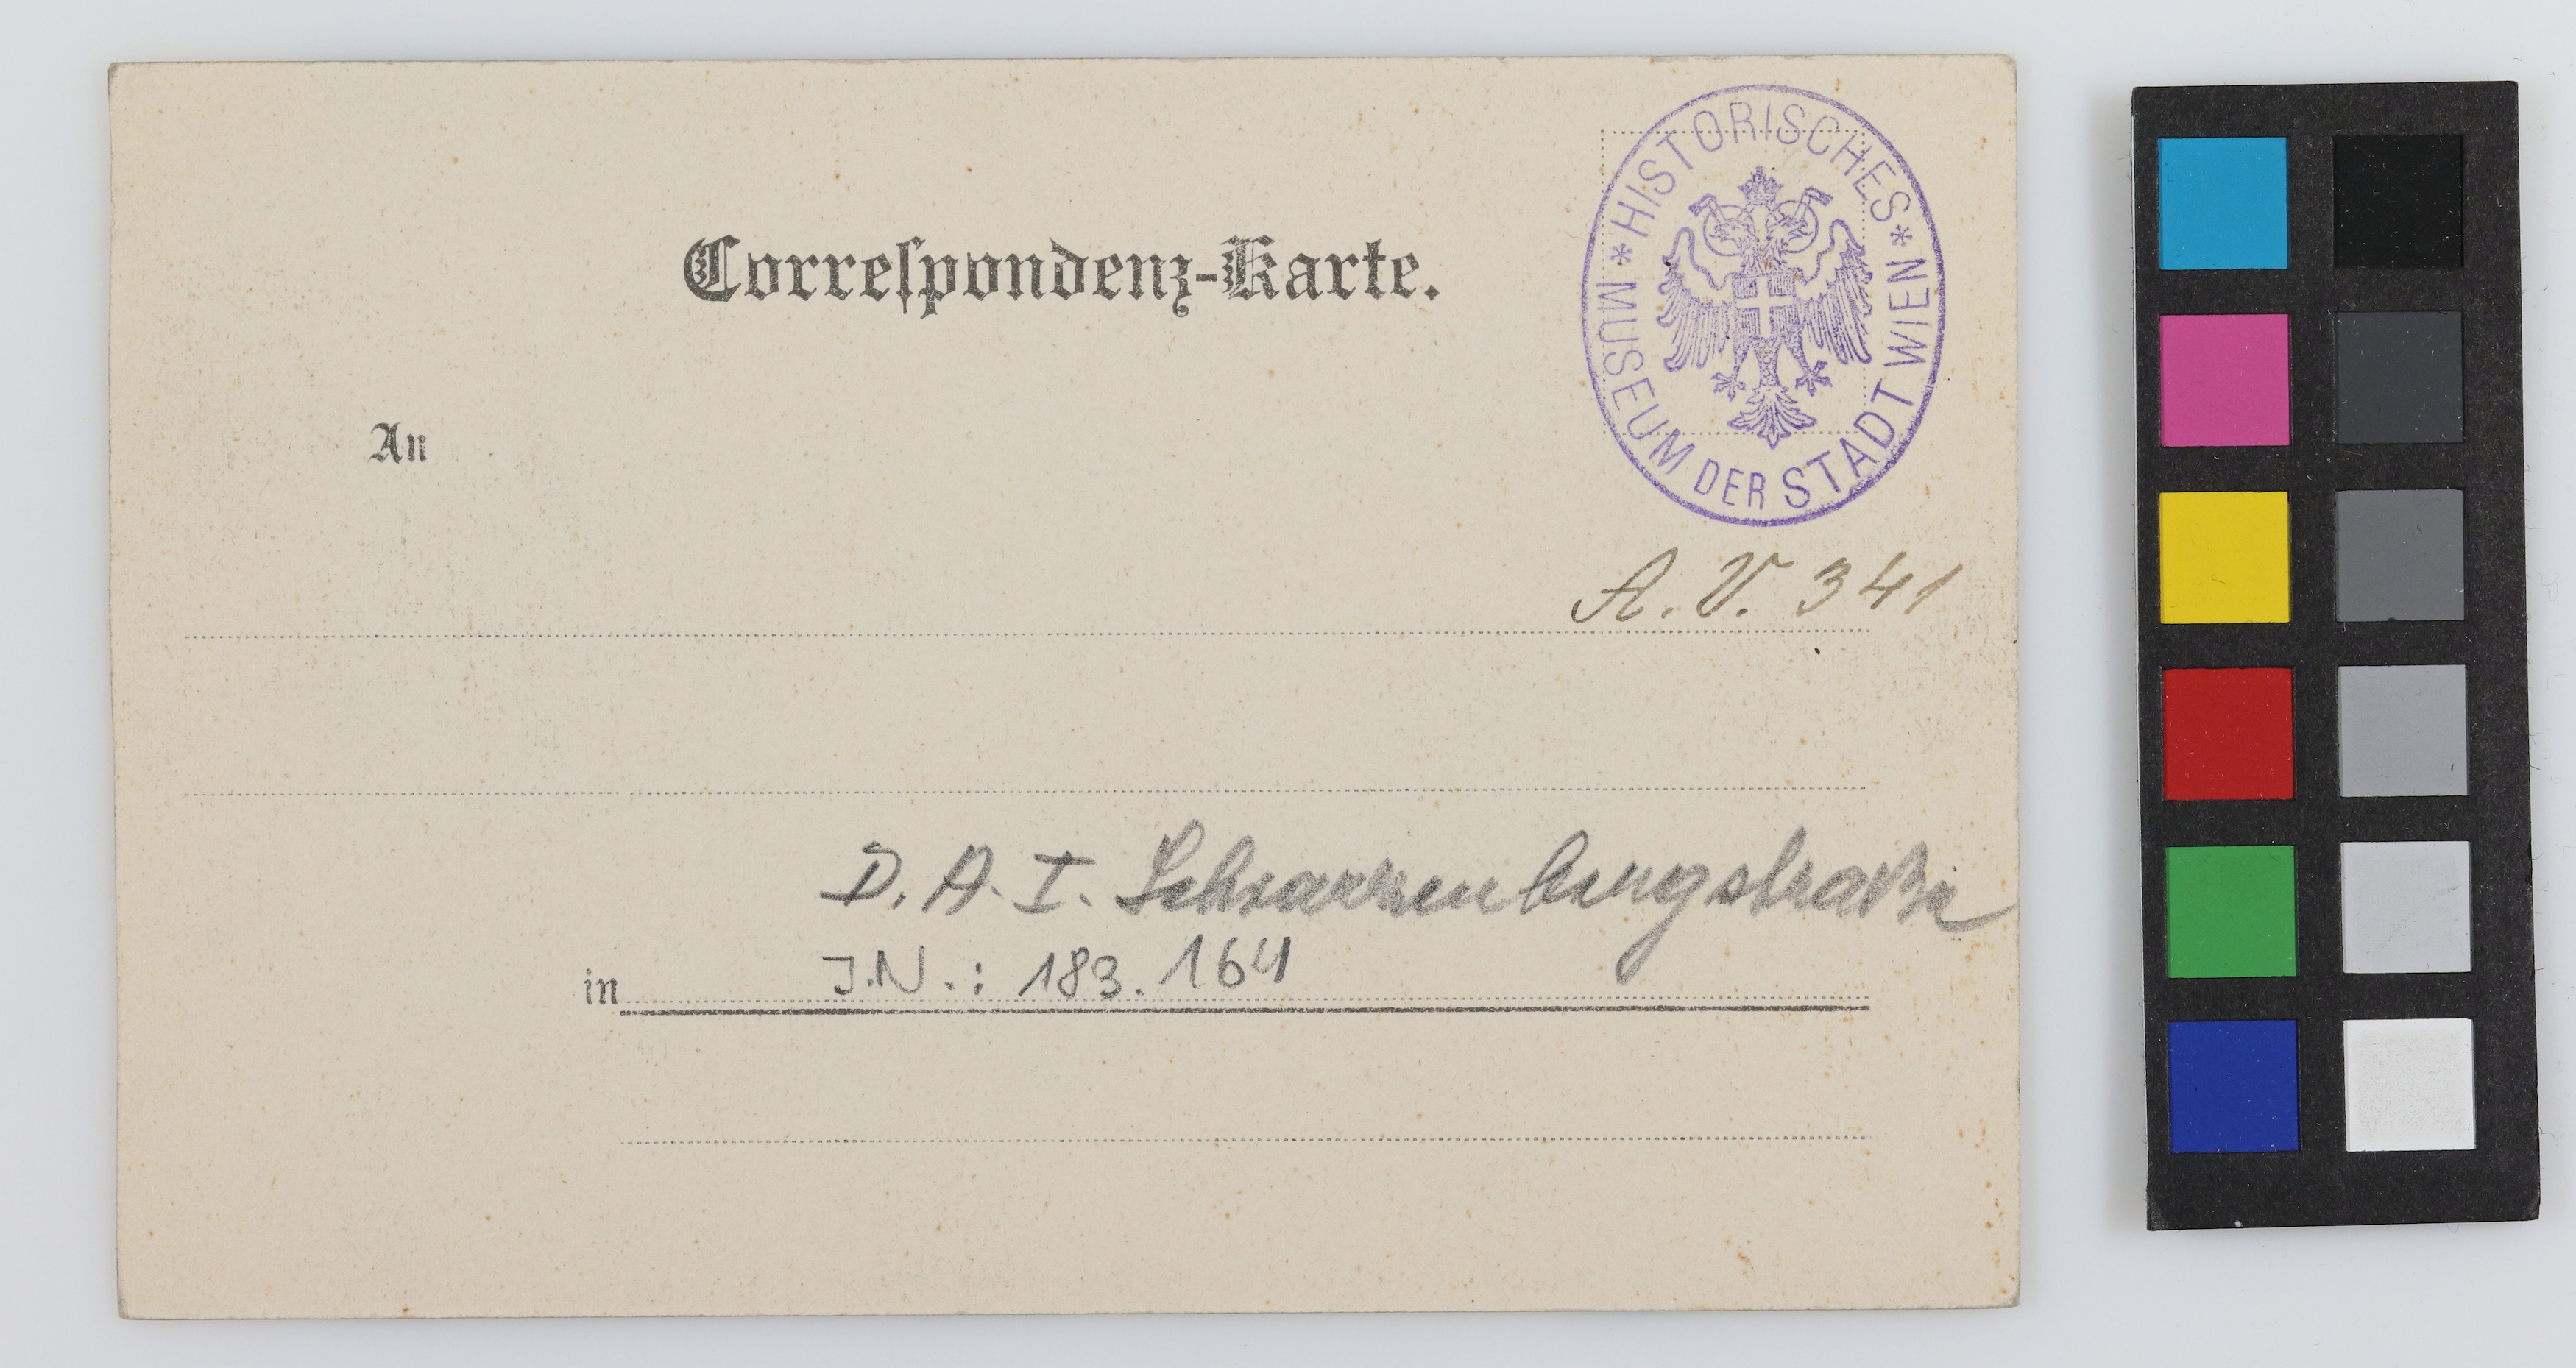 Correſpondenz-Karte.
* HISTORISCHES *
MUSEUM DER STADT WIEN
An
A. V. 341
D. A. I. Schwarzenbergstraße
J.N.: 183.164
in